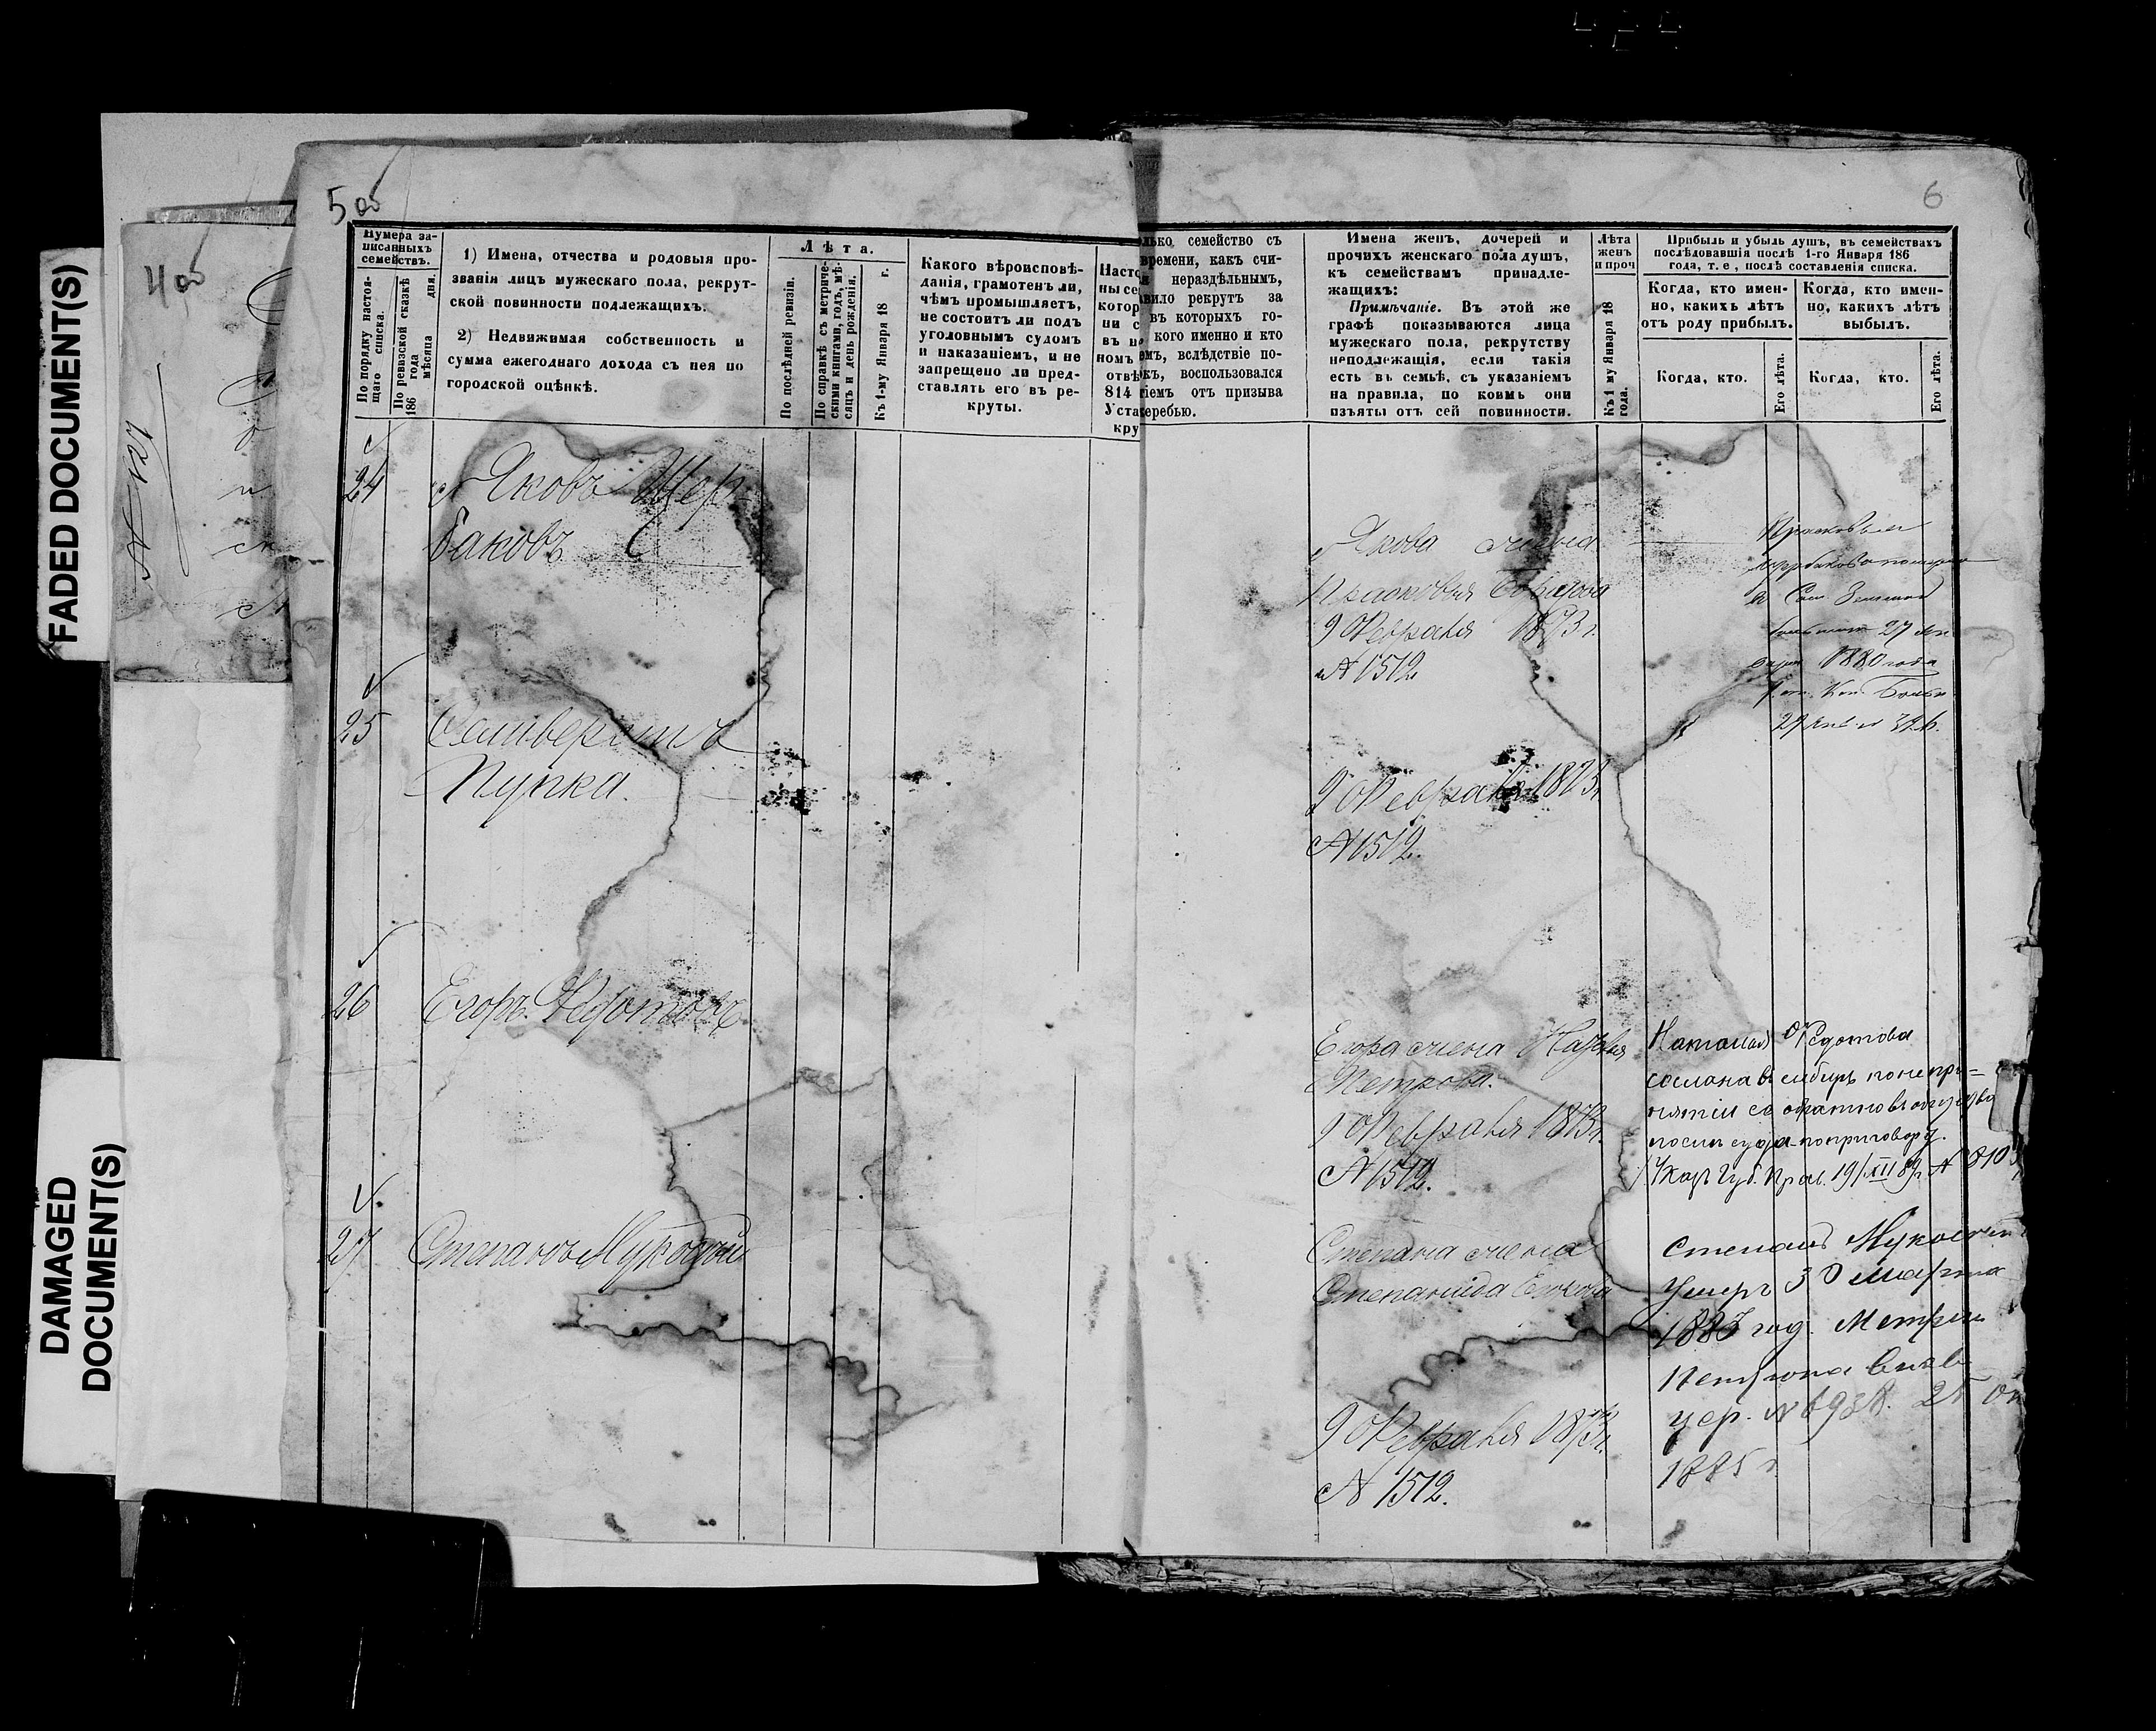 FADED DOCUMENT(S)
DAMAGED
DOCUMENT(S)
4 об
5 об
6
Нумера за-
писанныхъ
семействъ.
По порядку настоя-
щаго списка.
По ревизской сказкѣ
186 года мѣсяца дня.
1) Имена, отчества и родовыя про-
званія лицъ мужескаго пола, рекрут-
ской повинности подлежащихъ.
2) Недвижимая собственность и
сумма ежегоднаго дохода съ нея по
городской оцѣнкѣ.
Лѣта.
По послѣдней ревизіи.
По справкѣ съ метриче-
скими книгами, годъ, мѣ-
сяцъ и день рожденія.
Къ 1-му Января 18 г.
Какого вѣроисповѣ-
данія, грамотенъ ли,
чѣмъ промышляетъ,
не состоитъ ли подъ
уголовнымъ судомъ
и наказаніемъ, и не
запрещено ли пред-
ставлять его въ ре-
круты.
Насто
ны се
котор
ни с
въ н
номъ
отвѣ
814
Уста
кру
лько, семейство съ
времени, какъ счи-
нераздѣльнымъ,
вило рекрутъ за
въ которыхъ го-
кого именно и кто
емъ, вслѣдствіе по-
окъ, воспользовался
іемъ отъ призыва
жеребью.
Имена женъ, дочерей и
прочихъ женскаго пола душъ,
къ семействамъ принадле-
жащихъ:
Примѣчаніе. Въ этой же
графѣ показываются лица
мужескаго пола, рекрутству
неподлежащія, если такія
есть въ семьѣ, съ указаніемъ
на правила, по коимъ они
изъяты отъ сей повинности.
Лѣта
женъ
и проч
Къ 1 му Января 18
года.
Прибыль и убыль душъ, въ семействахъ
послѣдовавшія послѣ 1-го Января 186
года, т. е, послѣ составленія списка.
Когда, кто имен-
но, какихъ лѣтъ
отъ роду прибылъ.
Когда, кто имен-
но, какихъ лѣтъ
выбылъ.
Когда, кто.
Его лѣта.
Когда, кто.
Его лѣта.
24
Яковъ Щер-
баковъ
Якова жена
Прасковья
9 Февраля 1873 г.
№ 1512
27
1880 года
25
Селиверстъ
Пупка.
9 Февраля 1873 г.
№ 1512.
26
Егоръ Федотовъ
Егора жена Марья
Петрова.
9 Февраля 1873 г.
№ 1512.
Наталья Федотова
сослана въ сибирь по непри-
нятіи ея обратно въ общество
послѣ суда по приговору.
Указ Губ. Прав. 19/XII 89 г. №
27
Степанъ Мукосѣй
Степана жена
Степанида
9 Февраля 1873 г.
№ 1512.
Степанъ
Умеръ 30 марта
1883 год. Метрич
цер. №
1885 г